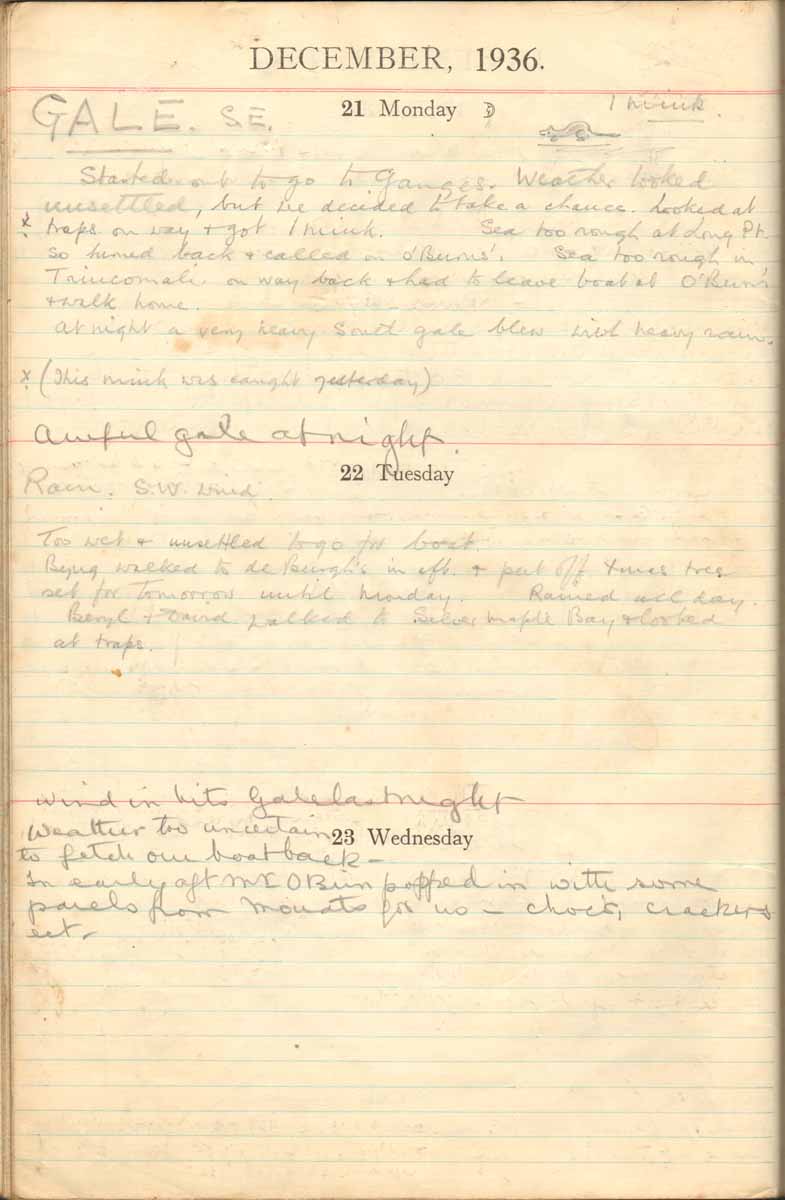 DECEMBER, 1936.
21 Monday
GALE. S.E.
1 mink.
Started out to go to Ganges. Weather looked
unsettled, but we decided to take a chance. Looked at
x traps on way & got 1 mink. Sea too rough at Long Pt.
so turned back & called on O'Buns'. Sea too rough in
Trincomali on way back & had to leave boat at O'Bun's
& walk home.
At night a very heavy South gale blew with heavy rain.
x (This mink was caught yesterday)
Awful gale at night.
22 Tuesday
Rain. S.W. wind
Too wet & unsettled to go for boat.
walked to de Burgh's in aft. & put off Xmas tree
set for Tomorrow until Monday. Rained all day.
Beryl & David walked to Silver Maple Bay & looked
at traps.
wind in Gale last night
23 Wednesday
Weather too uncertain
to fetch our boat back –
In early aft O'Bun popped in with some
from Mouats for us – chocs, crackers
ect.